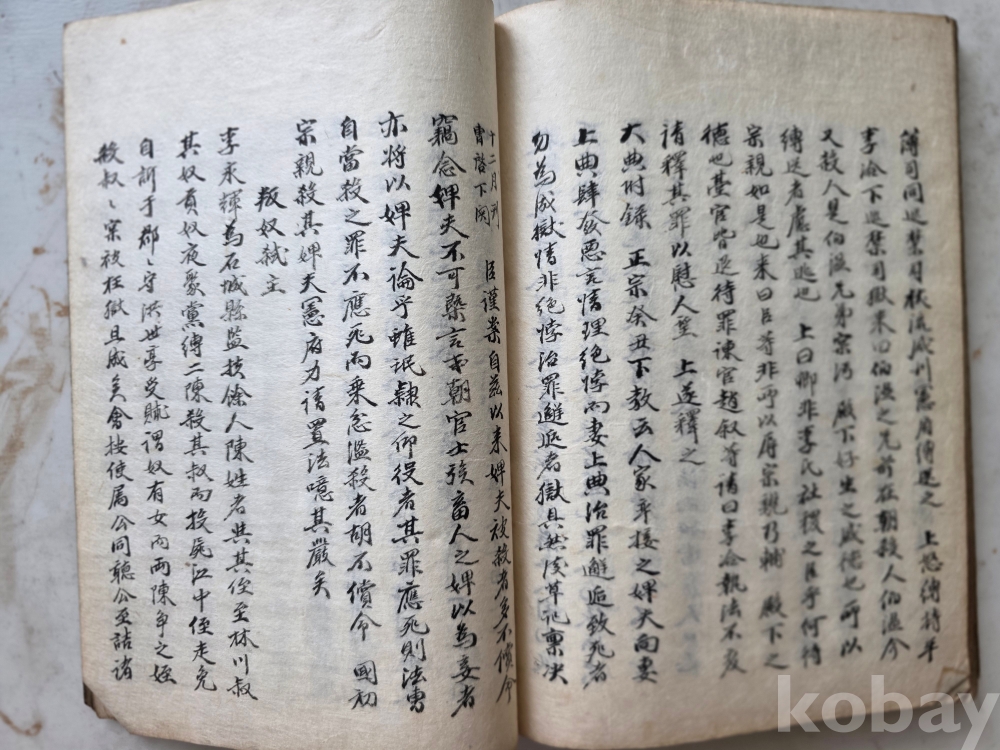 薄司同巡禁司枝流咸州憲府傅遂之 上怒縛持平
李淦下巡禁司獄来曰伯温之兄前在朝殺人伯温今
又殺人是伯温兄弟蒙污 殿下好生之盛德也所以
縛送者慮其逃也 上曰卿非李氏社稷之臣乎何待
宗親如是也来曰臣等非所以辱宗親乃補 殿下之
德也臺官皆逆待罪諫官趙叙等請曰李淦執法不发
請釋其罪以慰人望 上遂釋之
大典附錄 正宗癸丑下教云人家率接之婢夫向妻
上典肆發惡言情理絶悖而妻上典治罪邂逅致死者
勿為成獄情非絶悖治罪邂逅者獄具然後草記稟决
十二月 刑
曹啓下関 臣謹案自兹以来婢夫被殺者多不償命
竊念婢夫不可槩言或朝官士族畜人之婢以為妾者
亦将以婢夫論乎雖氓隷之仰役者其罪應死則法曹
自當殺之罪不應死而乗忿濫殺者胡不償命 國初
宗親殺其婢夫憲府力請置法噫其嚴矣
叛奴弑主
李永輝為石城縣監扶餘人陳姓者与其侄至林川叔
其奴責奴夜聚黨縛二陳殺其叔而投屍江中侄走免
自訴于郡〻守洪世亨受賕謂奴有女而兩陳争之姪
殺叔〻案被枉獄且成矣會按使属公同聽公至詰諸
kobay